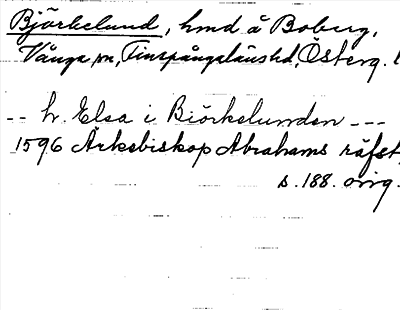 Björkelund, hmd å Boberg,
Vånga sn, Finspångalänshd, Österg. l
-- h. Elsa i Biörkelunden ---
1596 Ärkebiskop Abrahams räfst
s. 188. orig.